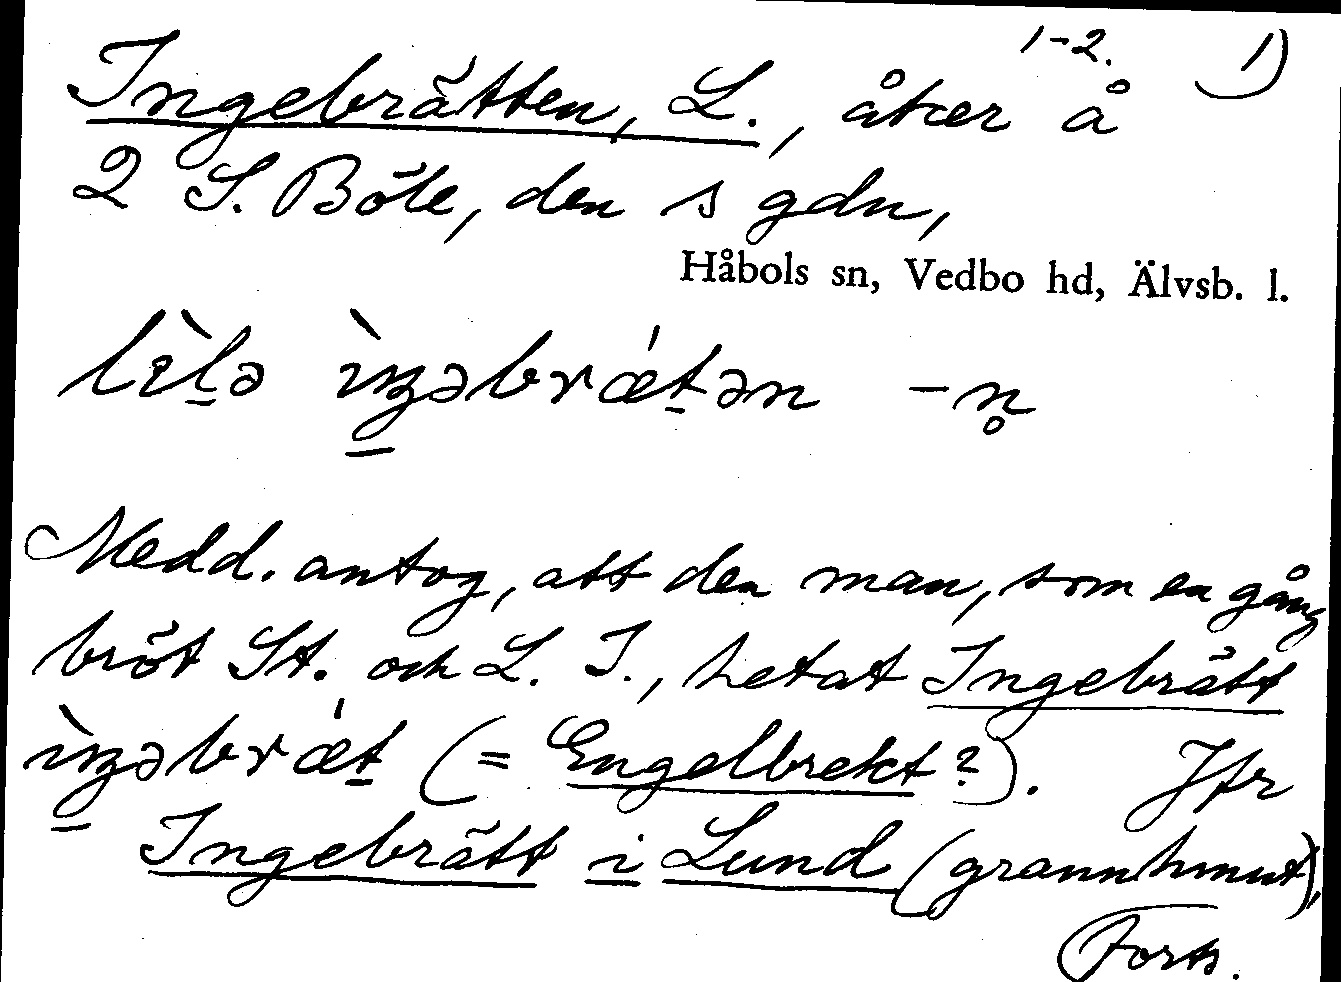 1-2. 1)
Ingebrätten, L., åker å
2 S. Böle, den s gdn,
Håbols sn, Vedbo hd, Älvsb. l.
lìlə ìŋəbrǽtən -n̥
Medd. antog, att den man, som en gång
bröt St. och L. I., hetat Ingebrätt
ìŋəbrǽt (= Engelbrekt?). Jfr
Ingebrätt i Lund (grannhmnt),
Forts.